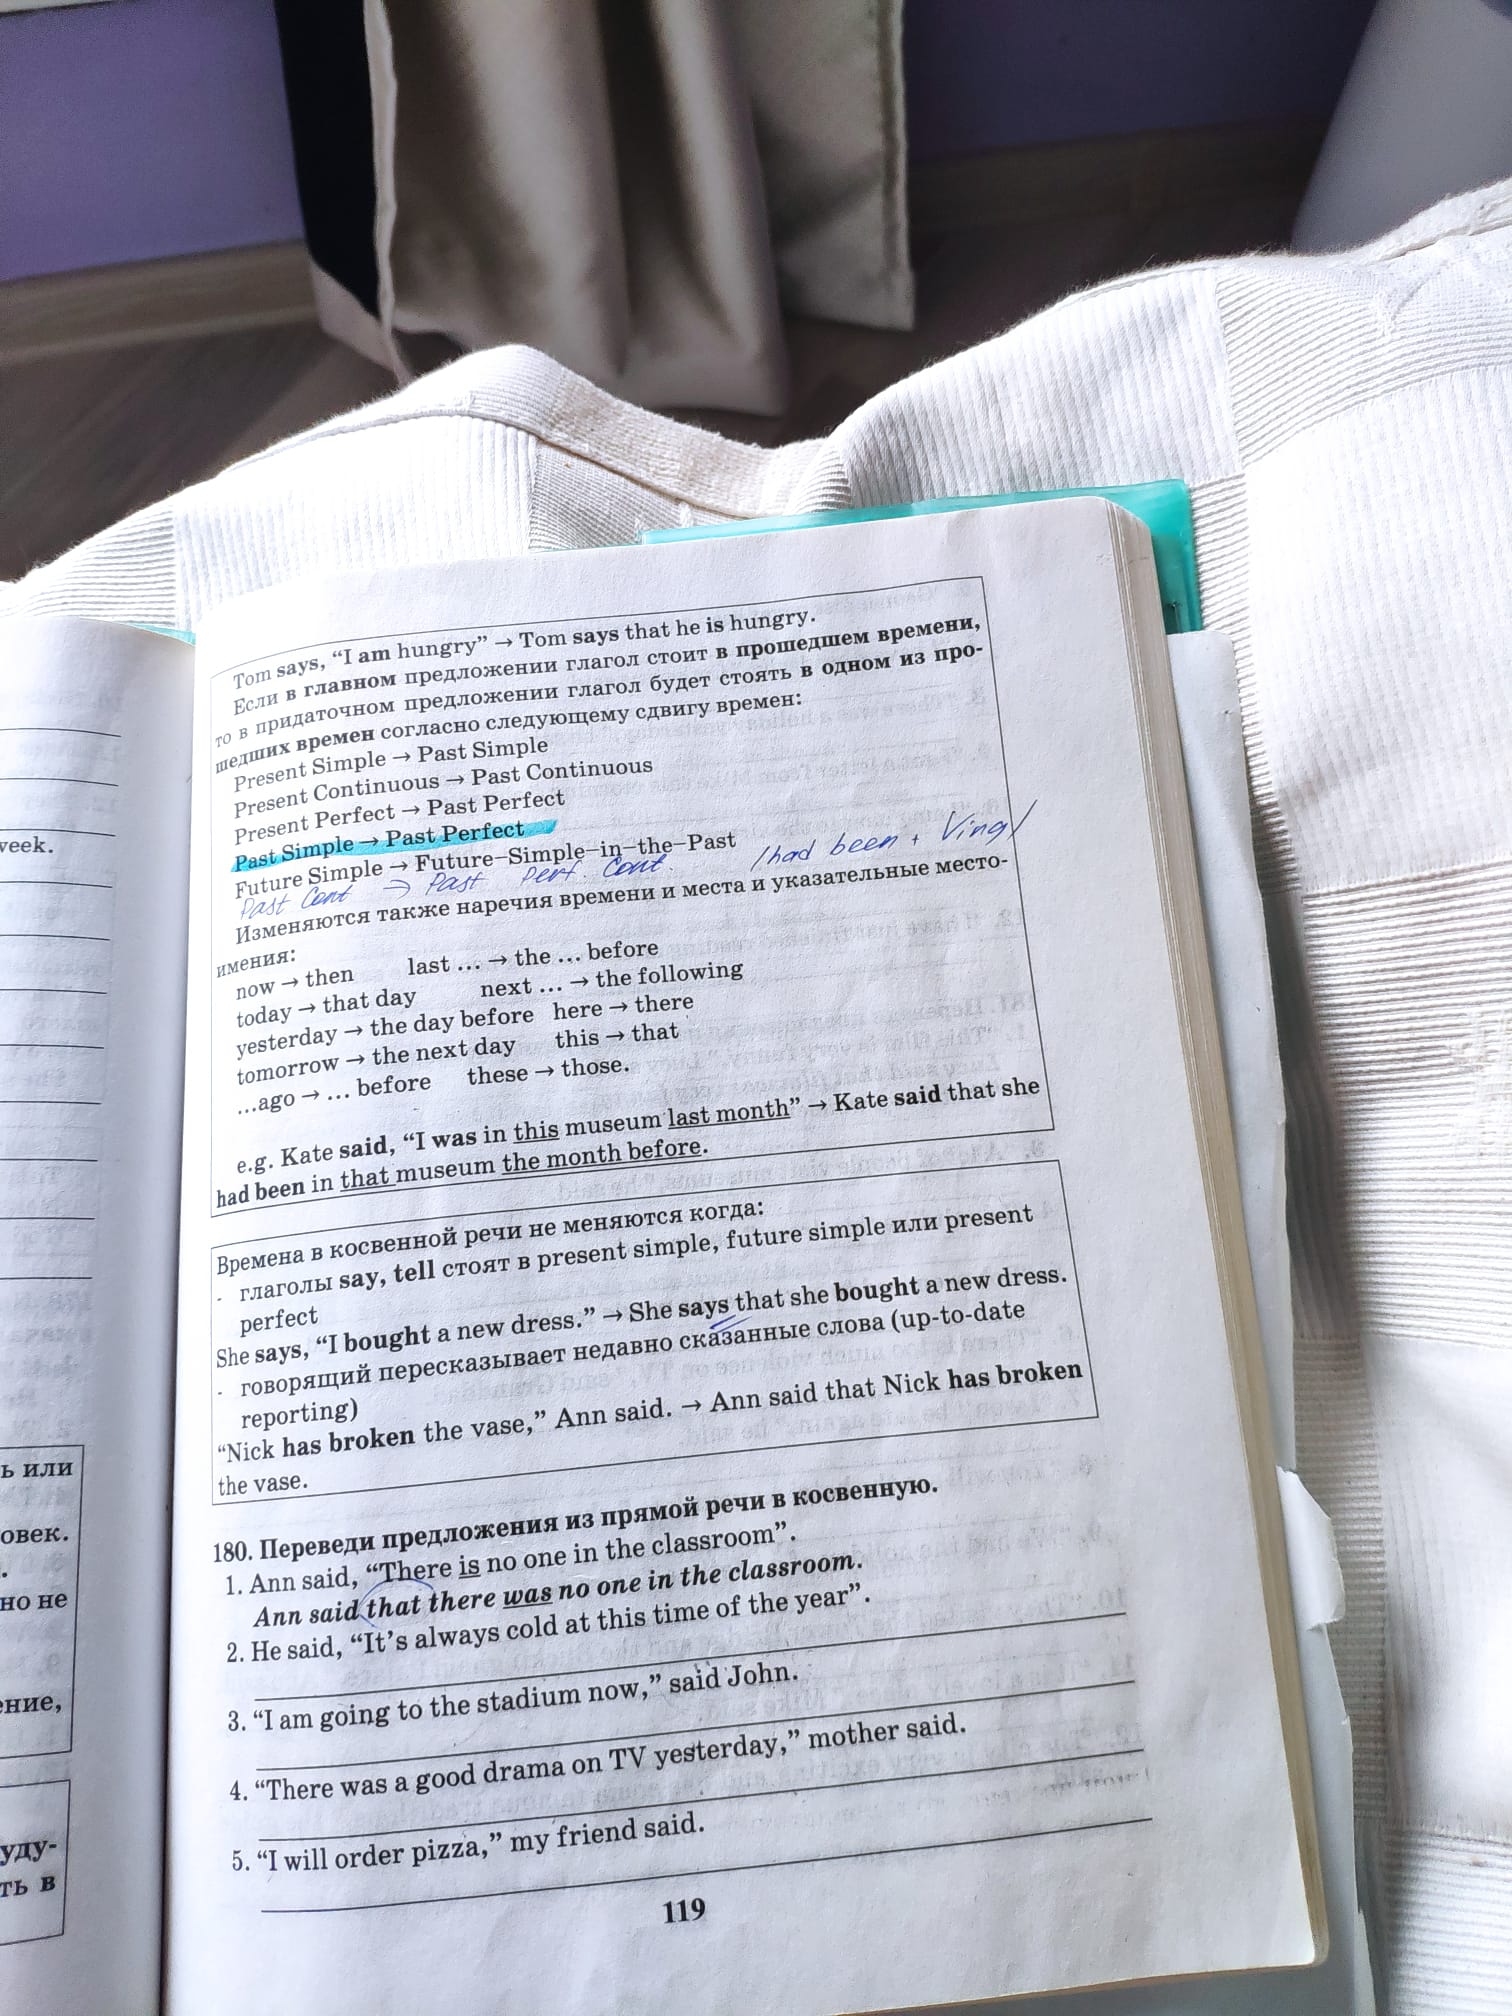 veek.
ь или
овек.
но не
ение,
уду-
ть в
Tom says, “I am hungry” → Tom says that he is hungry.
Если в главном предложении глагол стоит в прошедшем времени,
то в придаточном предложении глагол будет стоять в одном из про-
шедших времен согласно следующему сдвигу времен:
Present Simple → Past Simple
Present Continuous → Past Continuous
Present Perfect → Past Perfect
Past Simple → Past Perfect
Future Simple → Future–Simple–in–the–Past
Past Cont → Past Perf. Cont. /had been + Ving/
Изменяются также наречия времени и места и указательные место-
имения:
now → then last ... → the ... before
today → that day next ... → the following
yesterday → the day before here → there
tomorrow → the next day this → that
...ago → ... before these → those.
e.g. Kate said, “I was in this museum last month” → Kate said that she
had been in that museum the month before.
Времена в косвенной речи не меняются когда:
- глаголы say, tell стоят в present simple, future simple или present
perfect
She says, “I bought a new dress.” → She says that she bought a new dress.
- говорящий пересказывает недавно сказанные слова (up-to-date
reporting)
“Nick has broken the vase,” Ann said. → Ann said that Nick has broken
the vase.
180. Переведи предложения из прямой речи в косвенную.
1. Ann said, “There is no one in the classroom”.
Ann said that there was no one in the classroom.
2. He said, “It’s always cold at this time of the year”.
3. “I am going to the stadium now,” said John.
4. “There was a good drama on TV yesterday,” mother said.
5. “I will order pizza,” my friend said.
119